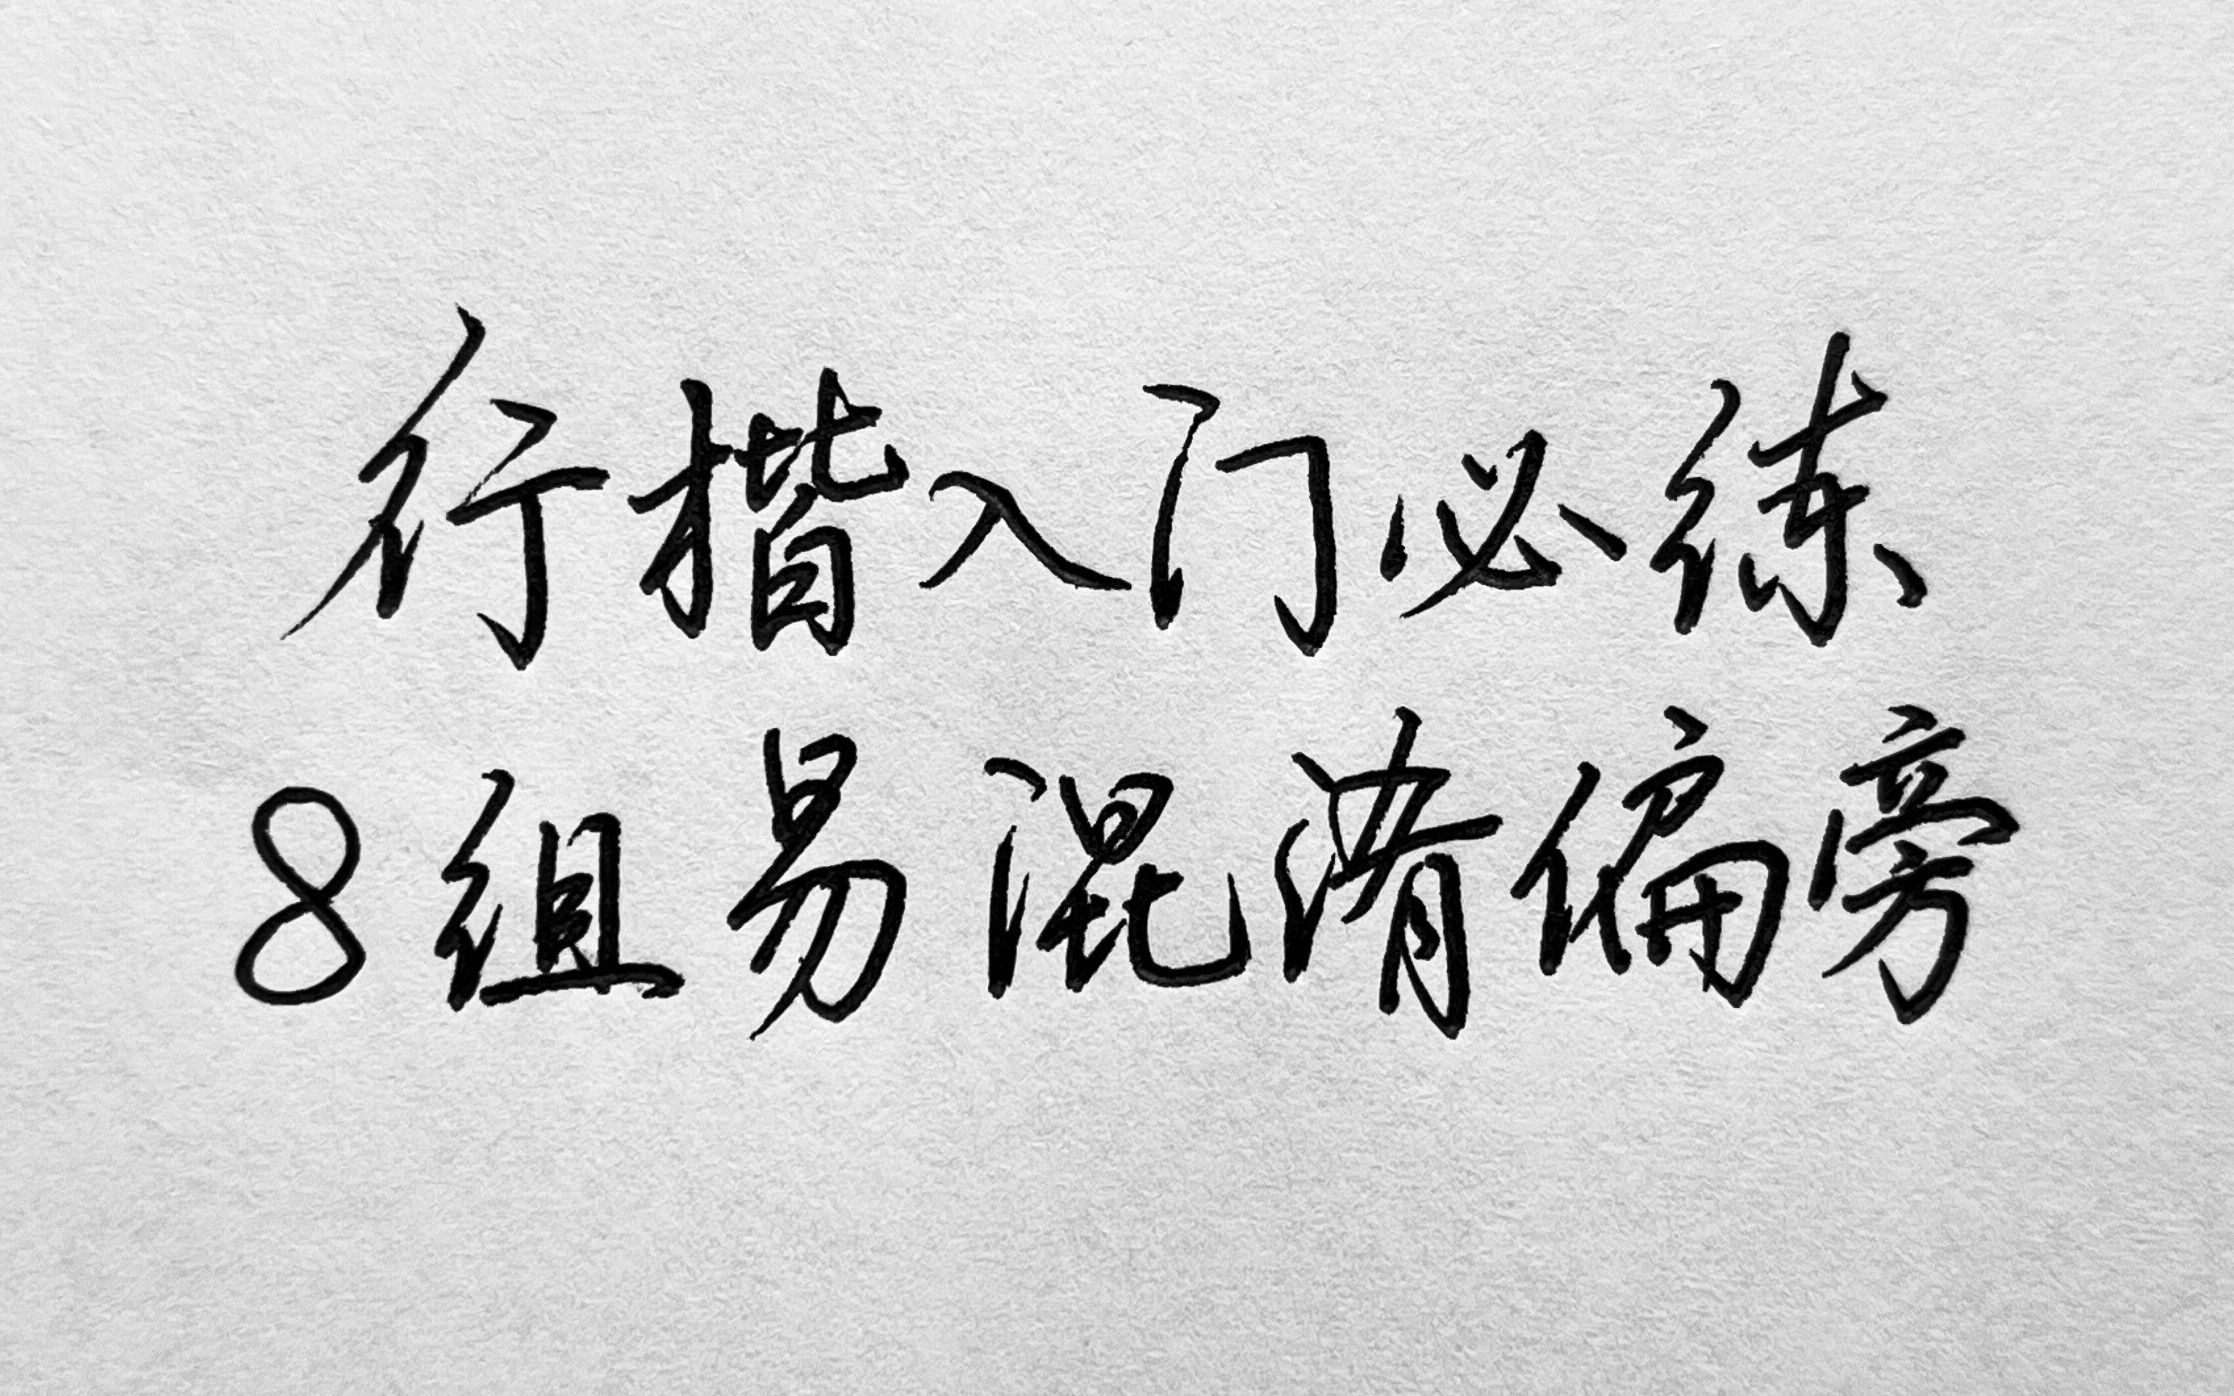 行楷入门必练
8组易混淆偏旁